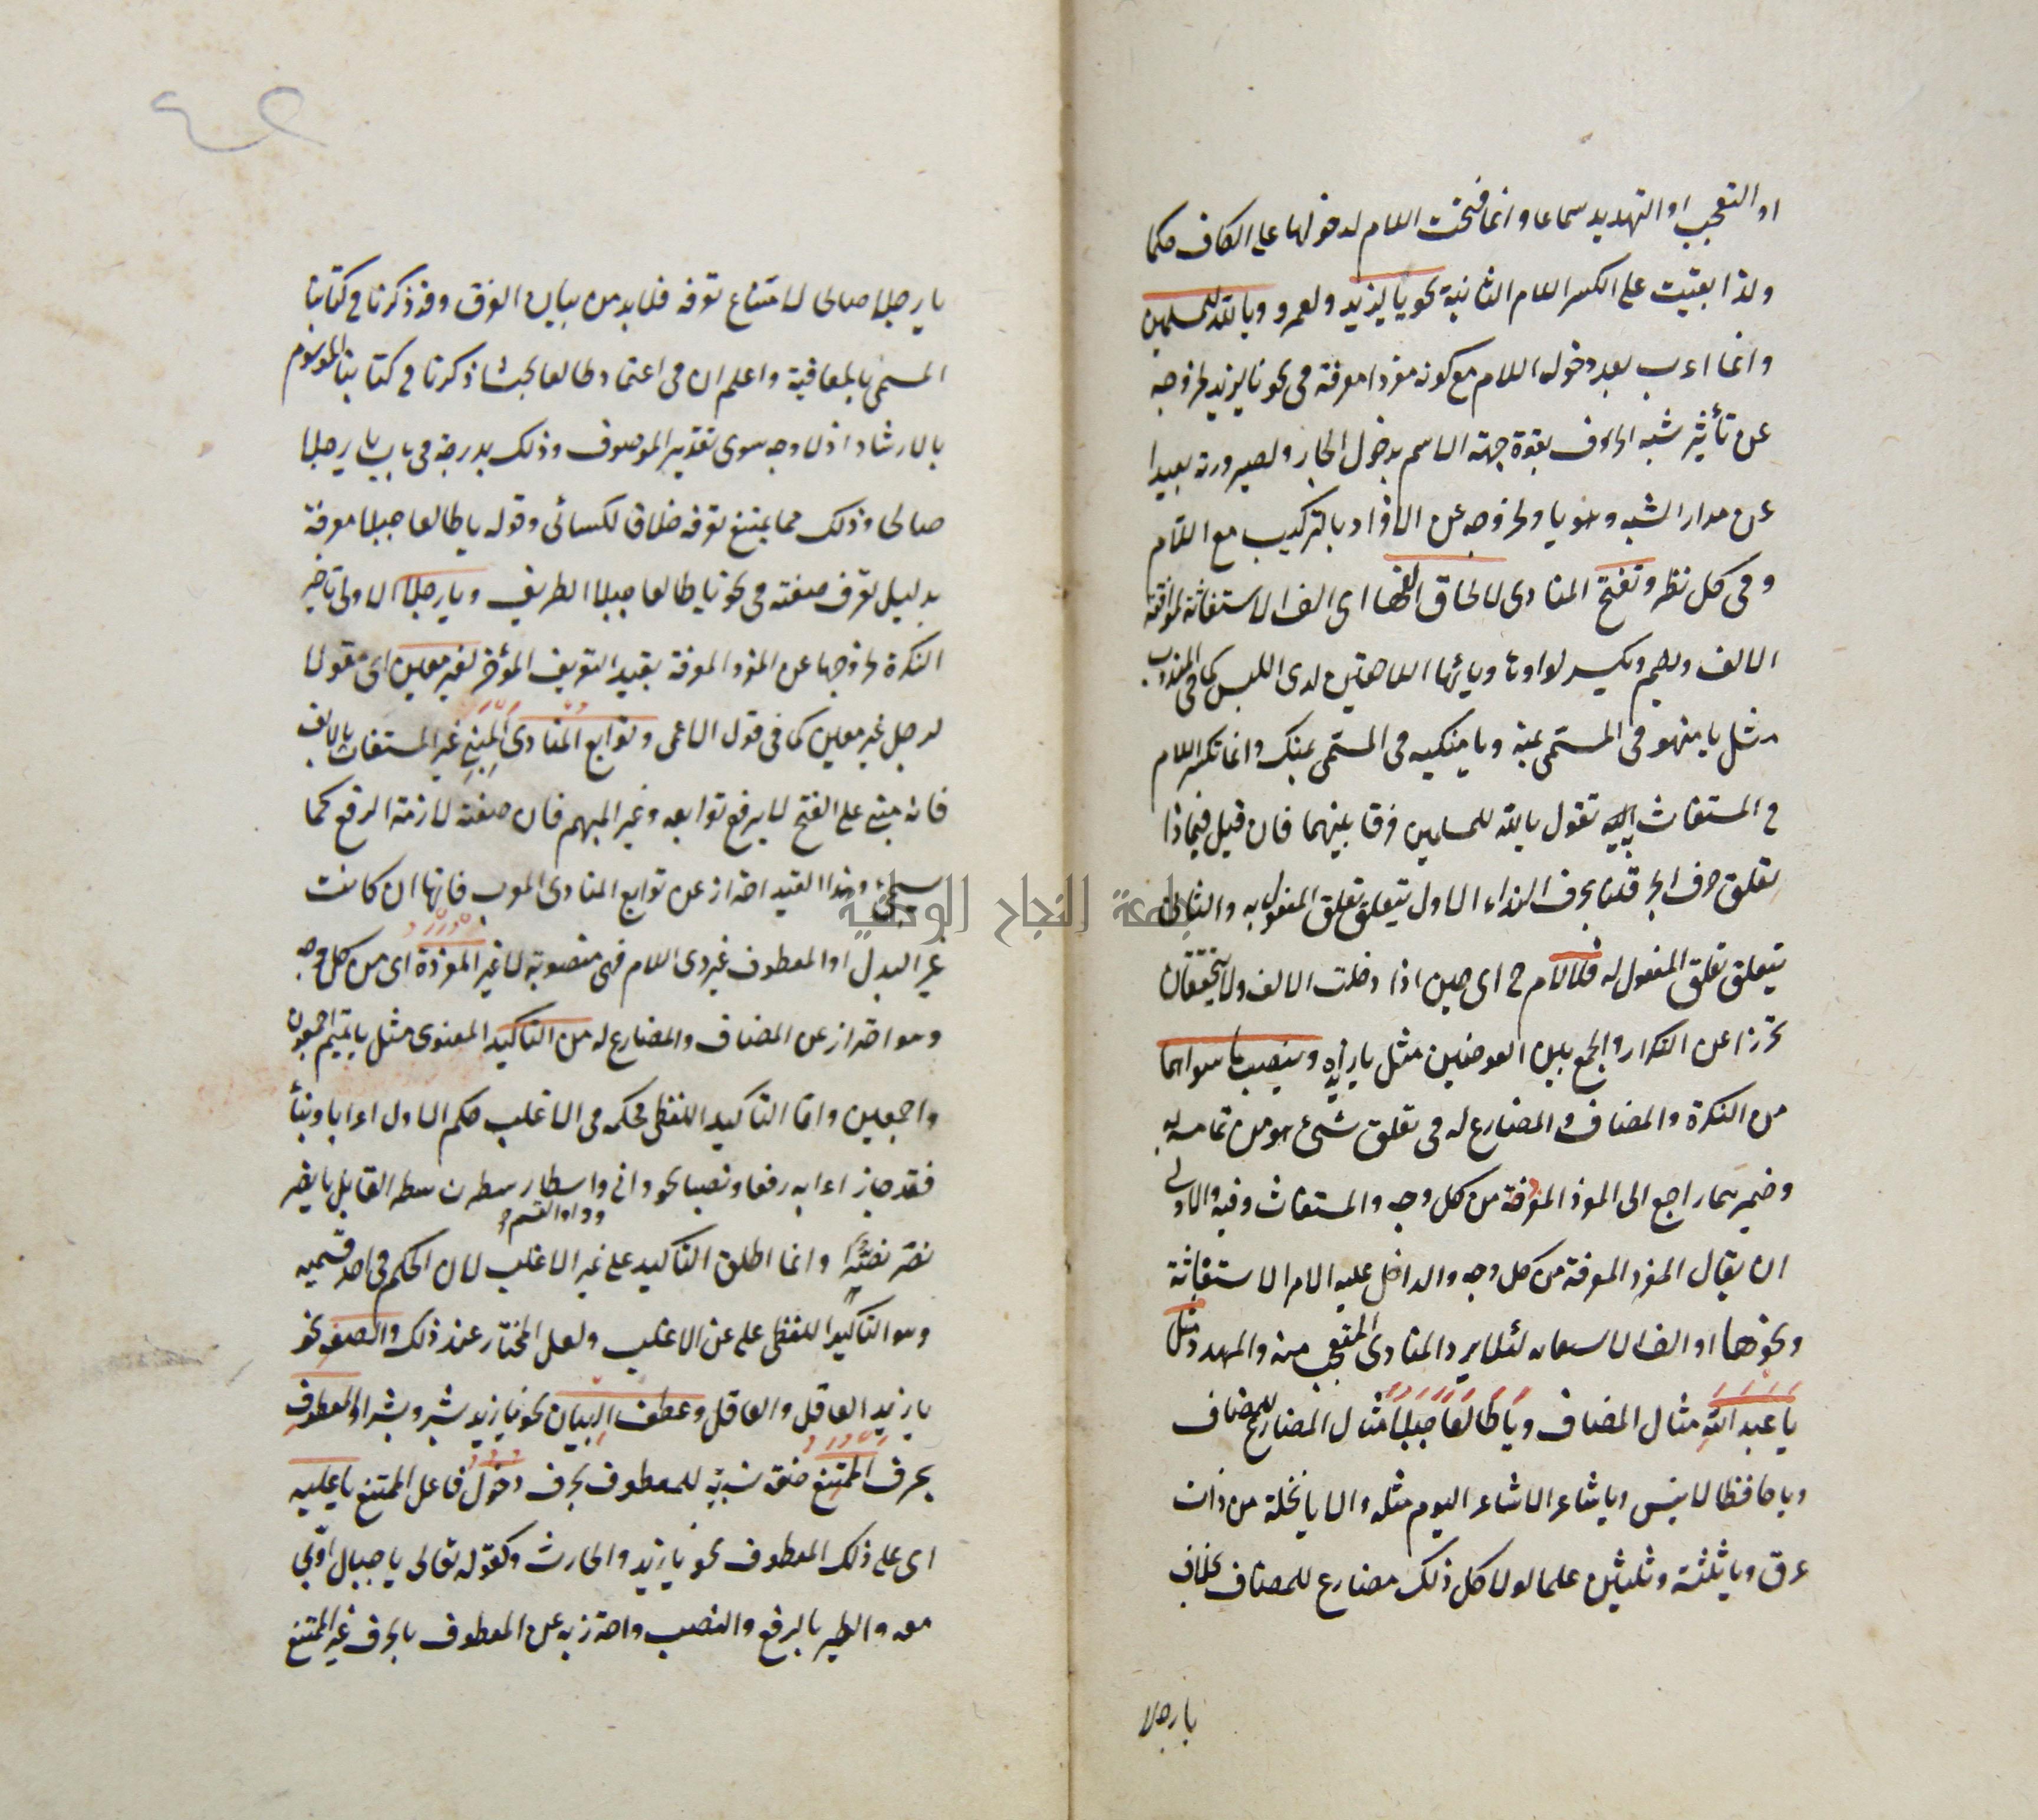 او التعجب او التهديد سماعا وانما فتحت اللام لدخولها على الكاف حكما
ولذا بقيت على الكسر اللام الثانية نحو يا لزيد ولعمرو ويا لله للمسلمين
وانما اعرب بعد دخول اللام مع كونه مفردا معرفة في نحو يا لزيد لخروجه
عن تأثير شبه الحرف بقوة جهة الاسم بدخول الجار ولصيرورته بعيدا
عن مدار الشبه وهو يا ولخروجه عن الافراد بالتركيب مع اللام
وفي كل نظر وتفتح المنادى لالحاق الفها اى الف الاستغاثة لموافقة
الالف وبضم وبكسر لواوها ويائها اللاحقتين لدى اللبس كما في المندوب
مثل يا منهو في المسمى بمنه ويا منكيه في المسمى بمنك وانما تكسر اللام
في المستغاث اليه تقول يا لله للمسلمين فرقا بينهما فان قيل فبماذا
تعلق حرف الجر قلنا بحرف النداء الاول يتعلق تعلق المفعول به والثانى
يتعلق تعلق المفعول له فلا لام ح اى حين اذا دخلت الالف ولا يتحققان
تحرزا عن التكرار والجمع بين العوضين مثل يا زيداه وينصب ما سواهما
من النكرة والمضاف والمضارع له في تعلق شئ هو من تمامه به
وضمير هما راجع الى المفرد المعرفة من كل وجه والمستغاث وفيه والاولى
ان يقال المفرد المعرفة من كل وجه والداخل عليه الام الاستغاثة
ونحوها او الف الاستغاثه لئلا يرد المنادى المتعجب منه والمهدد مثل
يا عبد الله مثال المضاف ويا طالعا جبلا مثال المضارع للمضاف
ويا حافظا لا ينسى ويا شاعرا لا شاعر اليوم مثله والا يا نخلة من ذات
عرق ويا ثلثة وثلثين علما لولا كل ذلك مضارع للمضاف بخلاف
يا رجلا
يا رجلا صالحا لامتناع توفه فلا بد من بيان الفرق وقد ذكرنا في كتابنا
المسمى بالمعافية واعلم ان في اعتماد طالعا بحثا ذكرنا في كتابنا الموسوم
بالارشاد اذ لا وجه سوى تقدير الموصوف وذلك يدرجه في باب يا رجلا
صالحا وذلك مما يمتنع توفه خلافا لكسائى وقوله يا طالعا جبلا معرفة
بدليل تعرف صفته في نحو يا طالعا جبلا الظريف ويا رجلا الاولى تأخير
النكرة لخروجها عن المفرد المعرفة بقيد التعريف المؤخر لغير معين اى مقولا
لرجل غير معين كما في قول الاعمى وتوابع المنادى المبني غير المستغاث بالالف
فانه مبني على الفتح لا يرفع توابعه وغير المبهم فان صفته لازمة الرفع كما
سيجئ وهذا القيد احتراز عن توابع المنادى المعرب فانها ان كانت
غير البدل او المعطوف غير ذى اللام فهى منصوبة لا غير المفردة اى من كل وجه
وهو احتراز عن المضاف والمضارع له من التأكيد المعنوى مثل يا تميم اجمعون
واجمعين واما التأكيد اللفظى فحكمه في الاغلب حكم الاول اعرابا وبناء
فقد جاز اعرابه رفعا ونصبا نحو وانى واسطار سطرن سطرا لقايل يا نصر
وواو القسم
نصر نصرا وانما اطلق التأكيد على غير الاغلب لان الحكم في احد قسميه
وهو التأكيد اللفظى على عن الاغلب ولعل المختار عنده ذلك والصفة نحو
يا زيد العاقل والعاقل وعطف البيان نحو يا زيد بشر وبشرا والمعطوف
بحرف الممتنع صفة سببية للمعطوف بحرف دخول فاعل الممتنع يا عليه
اى على ذلك المعطوف نحو يا زيد والحارث وكقوله تعالى يا جبال اوبى
معه والطير بالرفع والنصب واحترز به عن المعطوف بالحرف غير الممتنع
جامعة النجاح الوطنية